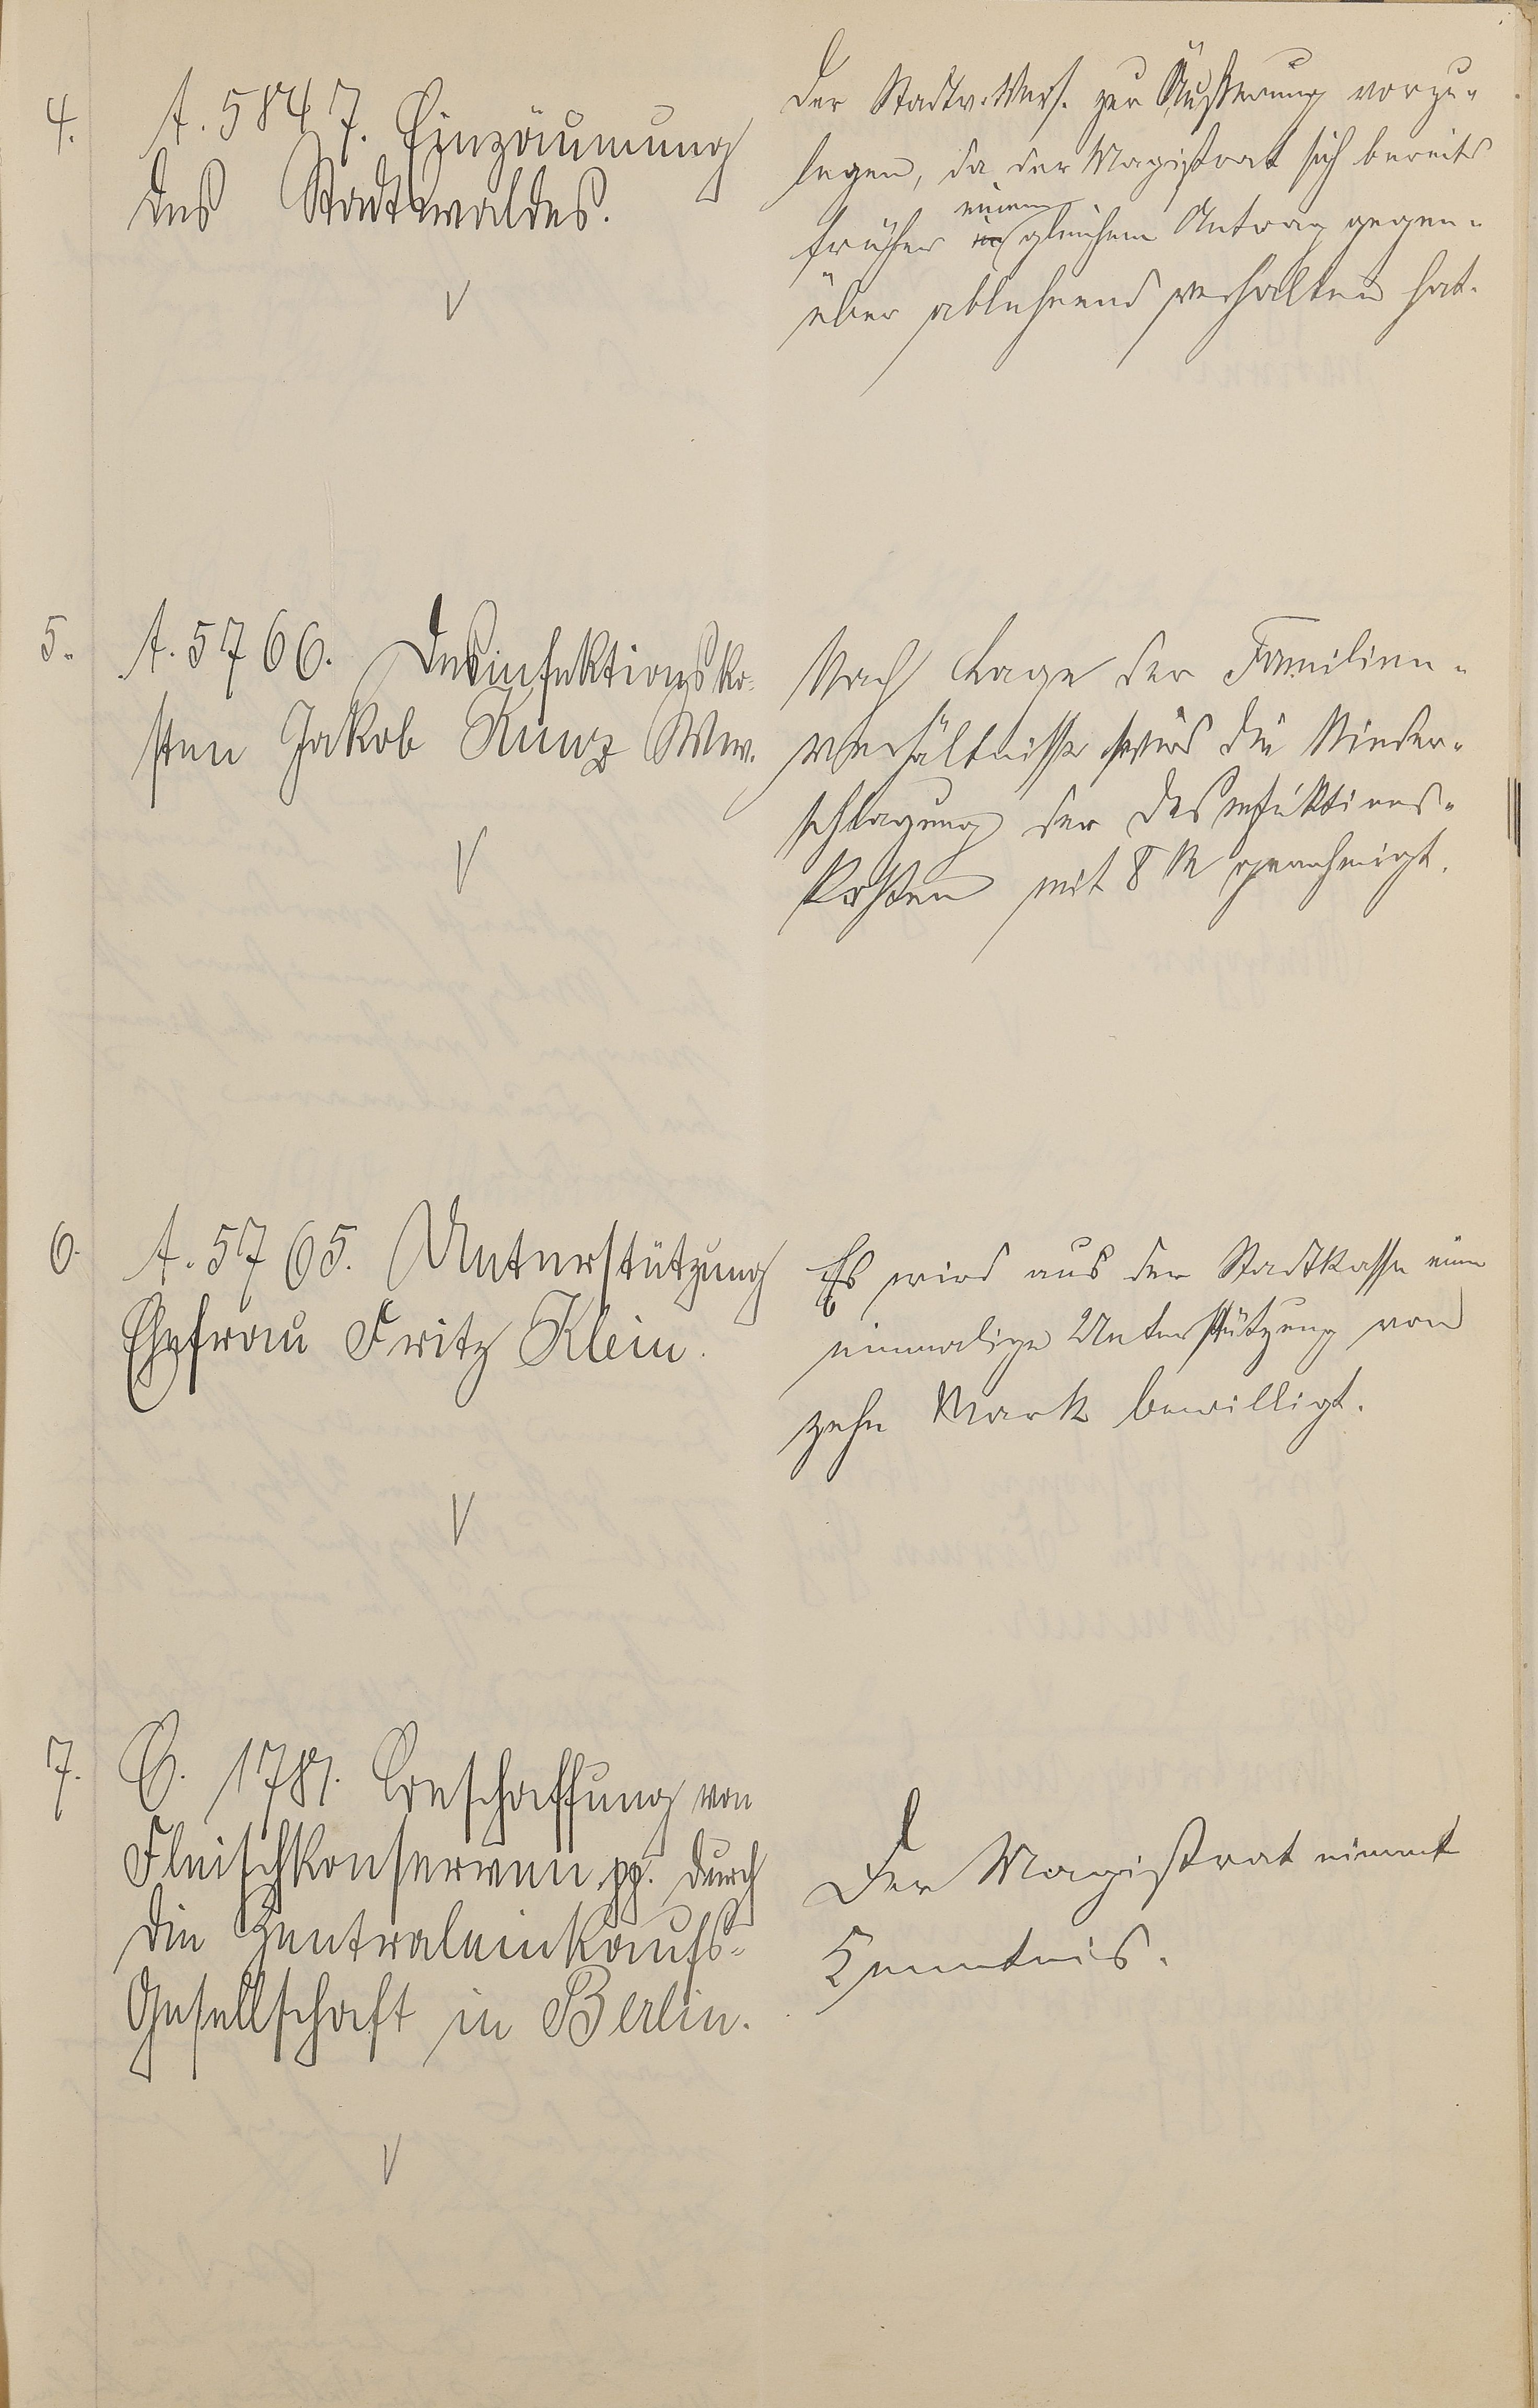 4.
A. 5847. Einzäunung
des Stadtwaldes.
Der Stadtv. Vers. zur Äußerung vorzu-
legen, da der Magistrat sich bereits
einem
früher gleichem Antrag gegen-
über ablehnend verhalten hat.
5.
A. 5766. Desinfektionsko-
sten Jakob Kunz Ww.
Nach Lage der Familien-
verhältnisse wird die Nieder-
schlagung der Desinfektions-
kosten mit 8 M genehmigt.
6.
A. 5765. Unterstützung
Ehefrau Fritz Klein.
Es wird aus der Stadtkasse eine
einmalige Unterstützung von
zehn Mark bewilligt.
7.
B. 1781. Beschaffung von
Fleischkonserven pp. durch
die Zentraleinkaufs-
Gesellschaft in Berlin.
Der Magistrat nimmt
Kenntnis.